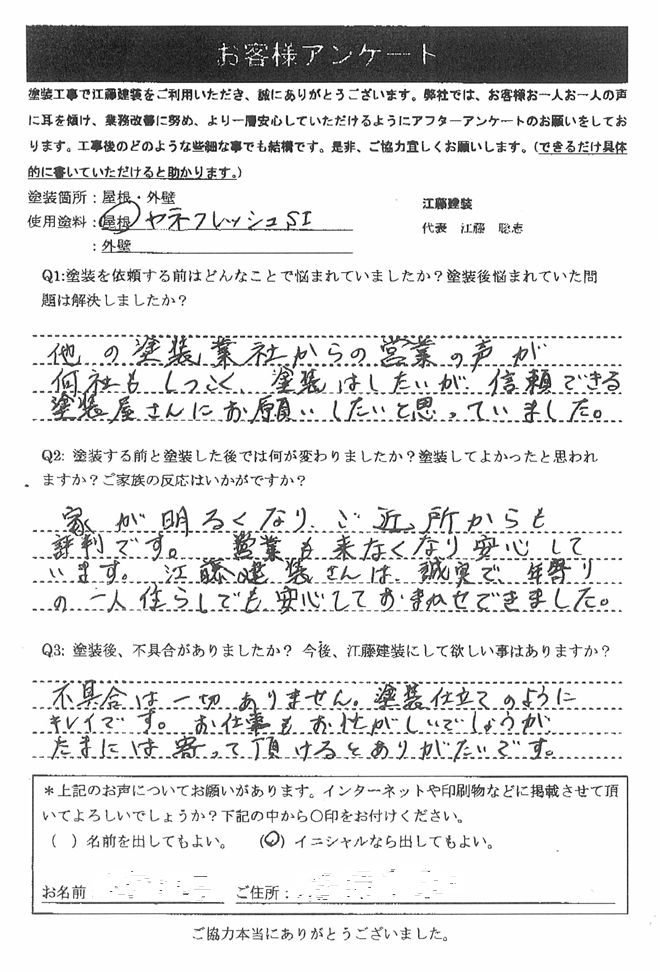 お客様アンケート
塗装工事で江藤建装をご利用いただき、誠にありがとうございます。弊社では、お客様お一人お一人の声
に耳を傾け、業務改善に努め、より一層安心していただけるようにアフターアンケートのお願いをしてお
ります。工事後のどのような些細な事でも結構です。是非、ご協力宜しくお願いします。(できるだけ具体
的に書いていただけると助かります。)
塗装箇所:屋根・外壁
江藤建装
使用塗料:屋根 ヤネフレッシュSI
代表 江藤 聡志
:外壁
Q1:塗装を依頼する前はどんなことで悩まれていましたか?塗装後悩まれていた問
題は解決しましたか?
他の塗装業社からの営業の声が
何社もしつこく、塗装はしたいが、信頼できる
塗装屋さんにお願いしたいと思っていました。
Q2: 塗装する前と塗装した後では何が変わりましたか?塗装してよかったと思われ
ますか?ご家族の反応はいかがですか?
家が明るくなり、ご近所からも
評判です。 営業も来なくなり安心して
います。江藤建装さんは、誠実で、年寄り
の一人住らしでも安心しておまかせできました。
Q3: 塗装後、不具合がありましたか? 今後、江藤建装にして欲しい事はありますか?
不具合は一切ありません。塗装仕立てのように
キレイです。お仕事もお忙がしいでしょうが
たまには寄って頂けるとありがたいです。
*上記のお声についてお願いがあります。インターネットや印刷物などに掲載させて頂
いてよろしいでしょうか?下記の中から○印をお付けください。
( )名前を出してもよい。 (○)イニシャルなら出してもよい。
お名前 ご住所:
ご協力本当にありがとうございました。